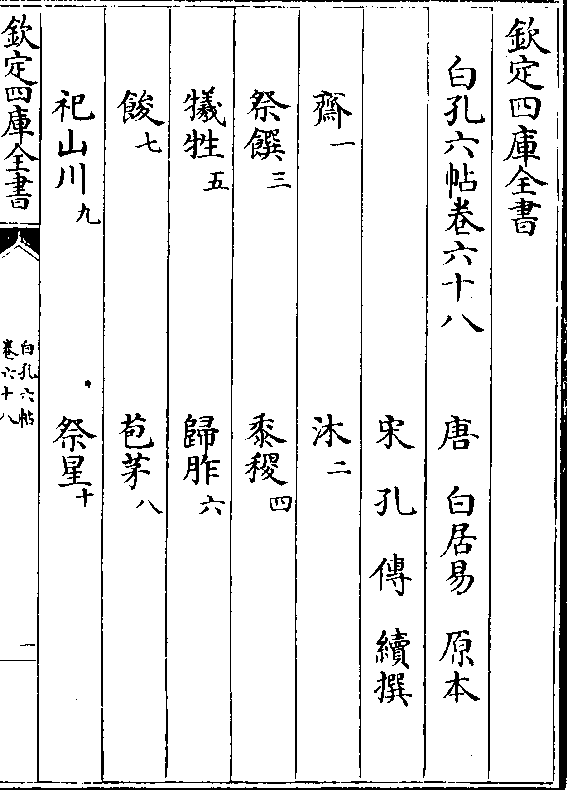 欽定四庫全書
白孔六帖卷六十八 唐 白居易 原本
宋 孔傳 續撰
齋一 沐二
祭饌三 黍稷四
犧牲五 歸胙六
餕七 苞茅八
祀山川九 祭星十
欽定四庫全書
白孔六帖
卷六十八
一